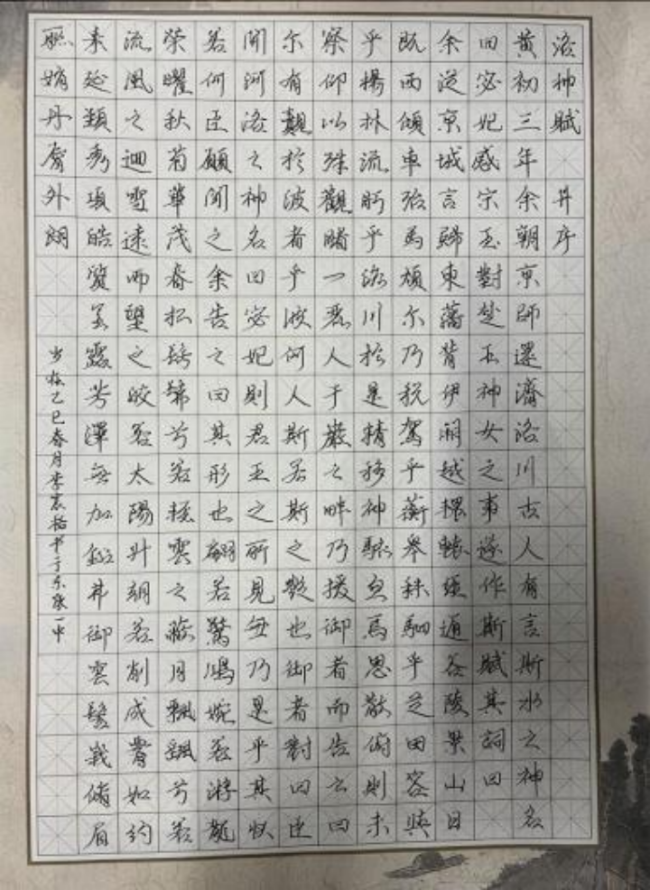 洛神賦 并序
黄初三年余朝京師還濟洛川古人有言斯水之神名
曰宓妃感宗玉對楚王神女之事遂作斯賦其詞曰
余從京城言歸東藩背伊闕越轘轅經通谷陵景山日
既西傾車殆馬煩尔乃税駕乎蘅皋秣駟乎芝田容與
乎楊林流眄乎洛川於是精移神駭忽焉思散俯則未
察仰以殊觀睹一麗人于巖之畔乃援御者而告之曰
尔有覿於波者乎彼何人斯若之斯之艷也御者對曰臣
聞河洛之神名曰宓妃則君王之所見無乃是乎其状
若何臣願聞之余告之曰其形也翩若驚鴻婉若游龍
榮曜秋菊華茂春松髣髴兮若輕雲之蔽月飄颻兮若
流風之迴雪遠而望之皎若太陽升朝若削成肩如約
素延頸秀項皓質呈露芳澤無加鉛弗御雲髻峩脩眉
聯娟丹脣外朗
乙巳春月李书于一中